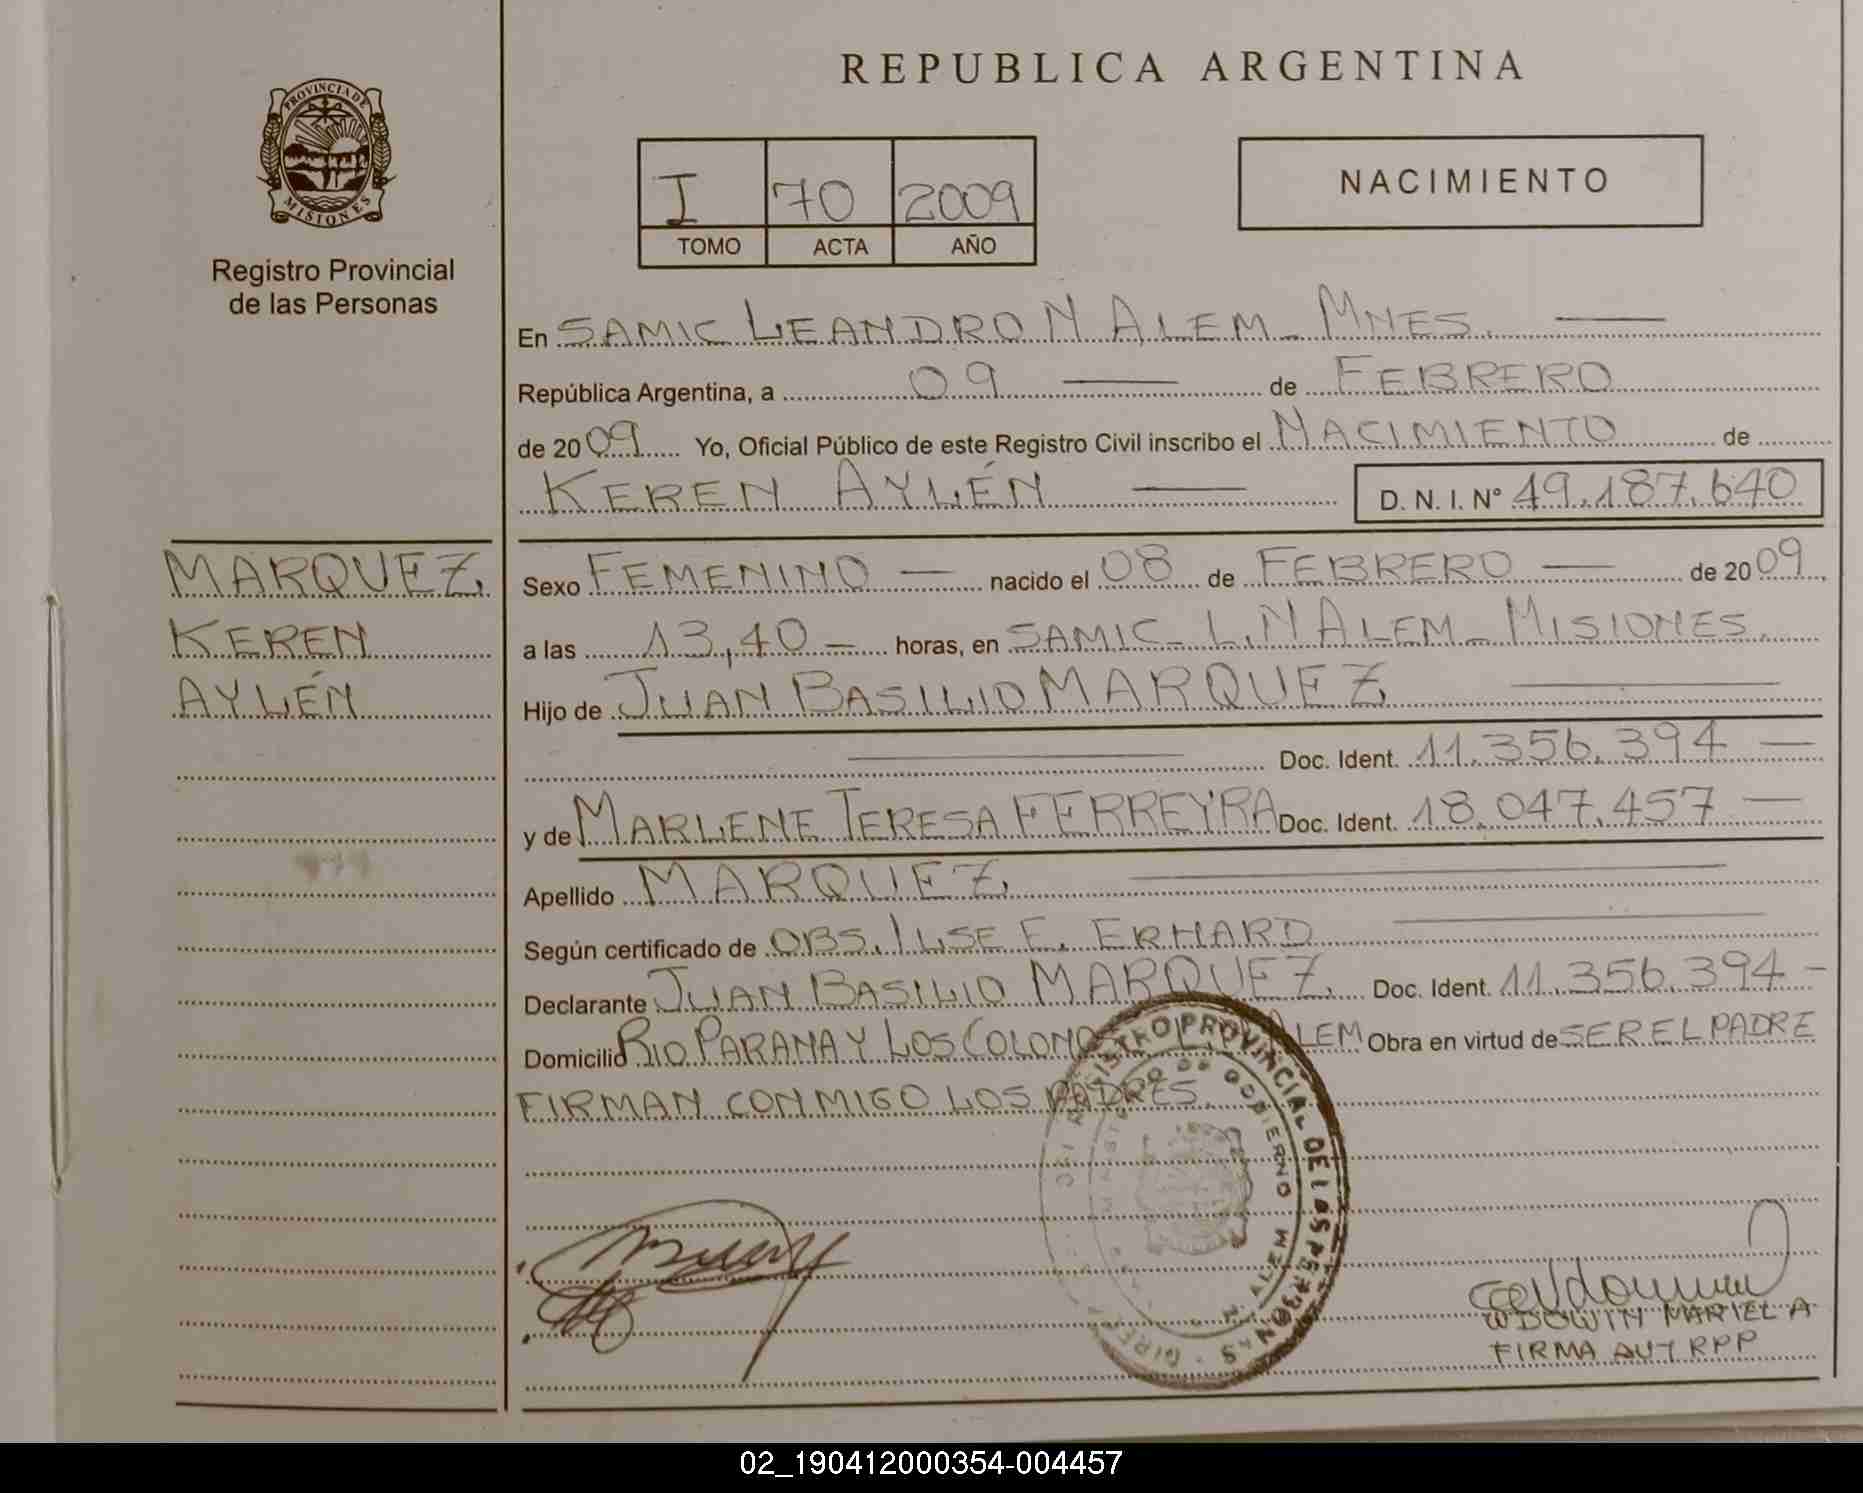 REPUBLICA ARGENTINA
PROVINCIA DE
MISIONES
Registro Provincial
de las Personas
I 70 2009
TOMO ACTA AÑO
NACIMIENTO
En SAMIC LEANDRO N ALEM - MNES.
República Argentina, a 09 de FEBRERO
de 2009 Yo, Oficial Público de este Registro Civil inscribo el NACIMIENTO de
KEREN AYLÉN D. N. I. N° 49.187.640
MARQUEZ,
KEREN
AYLÉN
Sexo FEMENINO — nacido el 08 de FEBRERO — de 2009
a las 13,40 — horas, en SAMIC - L. N ALEM - MISIONES.
Hijo de JUAN BASILIO MARQUEZ
Doc. Ident. 11.356.394 —
y de MARLENE TERESA FERREYRA Doc. Ident. 18.047.457 —
Apellido MARQUEZ
Según certificado de OBS. ILSE E. ERHARD
Declarante JUAN BASILIO MARQUEZ. Doc. Ident. 11.356.394 -
Domicilio RIO PARANA Y LOS COLONOS ALEM Obra en virtud de SER EL PADRE
FIRMAN CONMIGO LOS PADRES.
REGISTRO PROVINCIAL DE LAS PERSONAS
DE GOBIERNO
N ALEM
WDOWIN MARIEL A
FIRMA AUT RPP
02_190412000354-004457